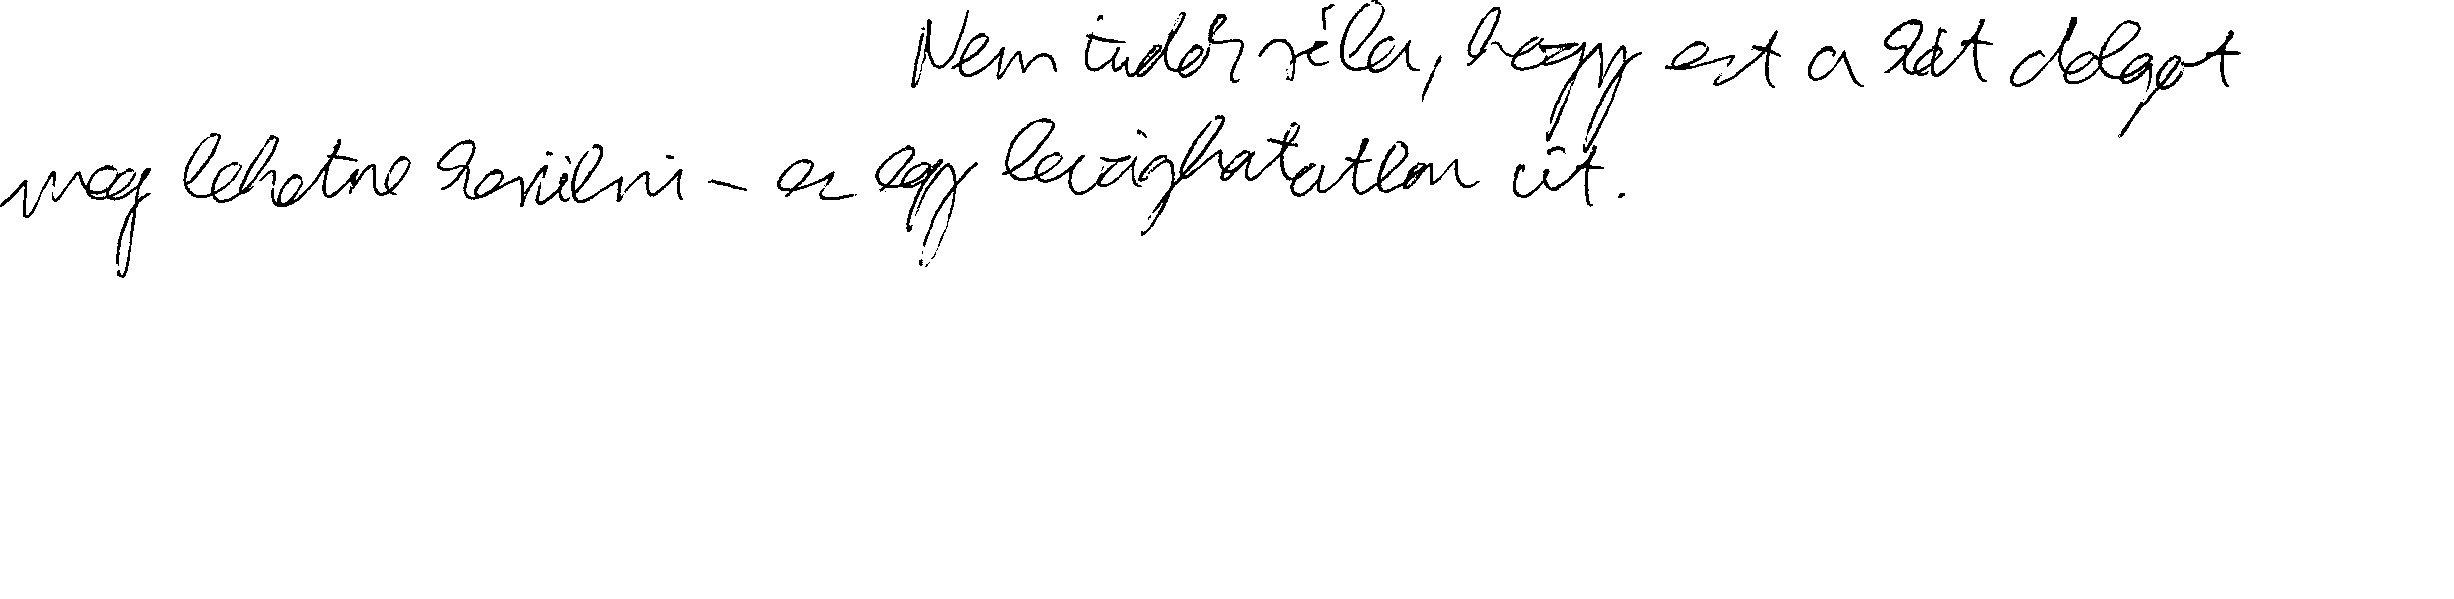 Nem tudok róla, hogy ezt a két dolgot
meg lehetne kerülni – ez egy levághatatlan út.